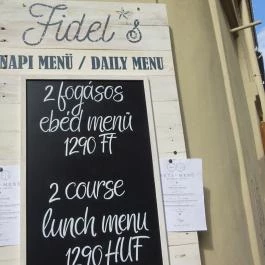 Fidel's
NAPI MENÜ / DAILY MENU
2 fogásos
ebéd menü
1290 FT
2 course
lunch menu
1290 HUF